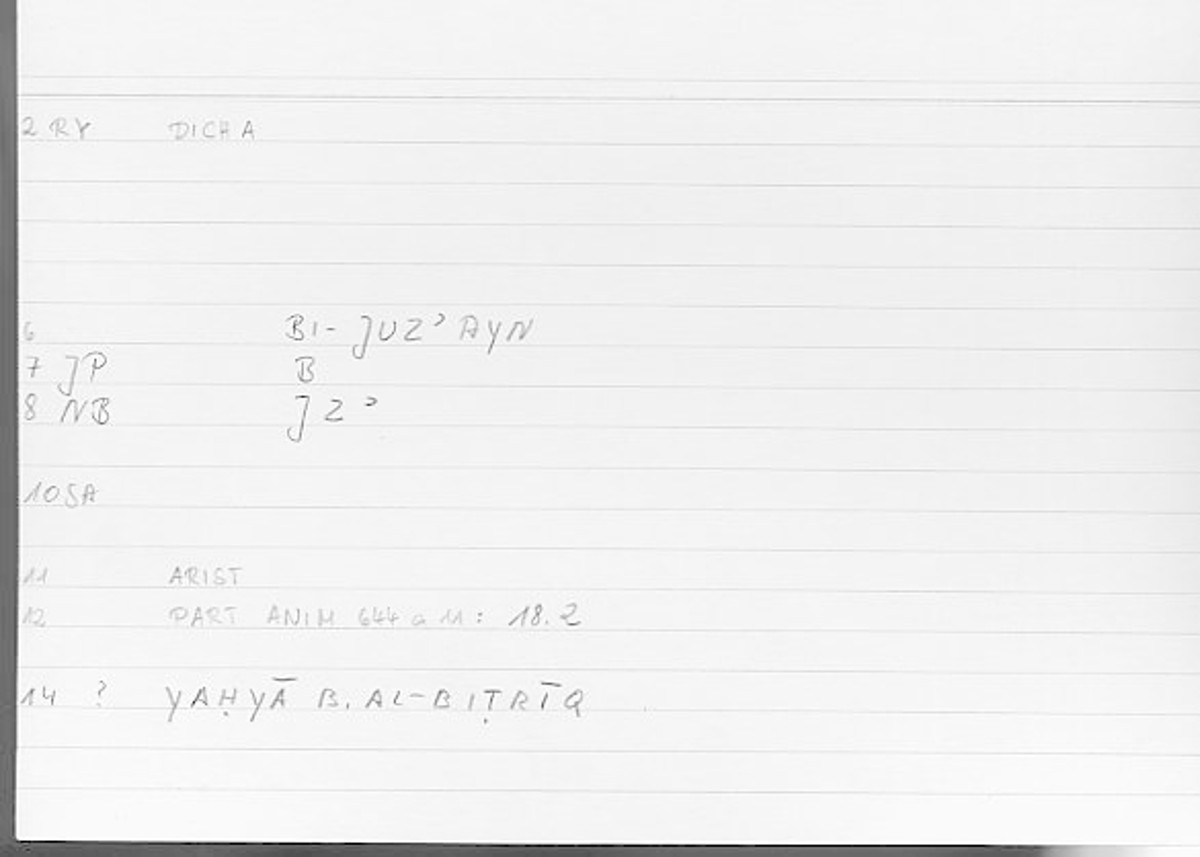 2 RY DICHA
6 BI- JUZʾAYN
7 JP B
8 NB JZʾ
10 SA
11 ARIST
12 PART ANIM 644 a 11: 18.2
14 ? YAḤYĀ B. AL-BIṬRĪQ